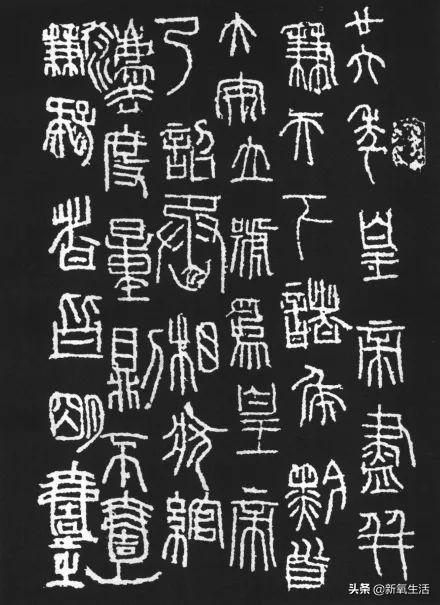 廿六年皇帝盡并
兼天下諸侯黔首
大安立號為皇帝
乃詔丞相狀綰
灋度量則不壹
歉疑者皆明壹之
头条 @新氧生活